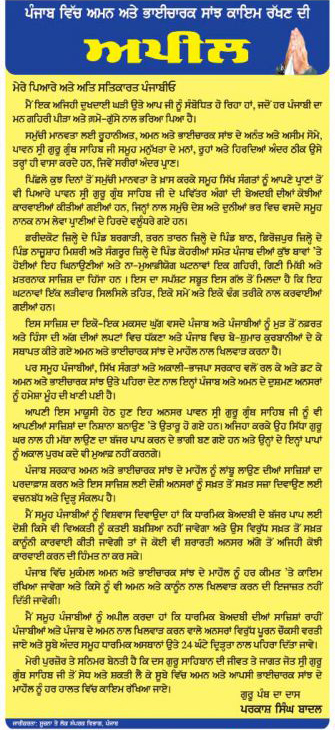 ਪੰਜਾਬ ਵਿੱਚ ਅਮਨ ਅਤੇ ਭਾਈਚਾਰਕ ਸਾਂਝ ਕਾਇਮ ਰੱਖਣ ਦੀ
ਅਪੀਲ
ਮੇਰੇ ਪਿਆਰੇ ਅਤੇ ਅਤਿ ਸਤਿਕਾਰਤ ਪੰਜਾਬੀਓ
ਮੈਂ ਇਕ ਅਜਿਹੀ ਦੁਖਦਾਈ ਘੜੀ ਉਤੇ ਆਪ ਜੀ ਨੂੰ ਸੰਬੋਧਿਤ ਹੋ ਰਿਹਾ ਹਾਂ, ਜਦੋਂ ਹਰ ਪੰਜਾਬੀ ਦਾ
ਮਨ ਗਹਿਰੀ ਪੀੜਾ ਅਤੇ ਗਮੋ-ਗੁੱਸੇ ਨਾਲ ਭਰਿਆ ਪਿਆ ਹੈ।
ਸਮੁੱਚੀ ਮਾਨਵਤਾ ਲਈ ਰੂਹਾਨੀਅਤ, ਅਮਨ ਅਤੇ ਭਾਈਚਾਰਕ ਸਾਂਝ ਦੇ ਅਨੰਤ ਅਤੇ ਅਸੀਮ ਸੋਮੇ,
ਪਾਵਨ ਸ੍ਰੀ ਗੁਰੂ ਗ੍ਰੰਥ ਸਾਹਿਬ ਜੀ ਸਮੂਹ ਮਨੁੱਖਤਾ ਦੇ ਮਨਾਂ, ਰੂਹਾਂ ਅਤੇ ਹਿਰਦਿਆਂ ਅੰਦਰ ਠੀਕ ਉਸੇ
ਤਰ੍ਹਾਂ ਹੀ ਵਾਸਾ ਕਰਦੇ ਹਨ, ਜਿਵੇਂ ਸਰੀਰਾਂ ਅੰਦਰ ਪ੍ਰਾਣ।
ਪਿਛਲੇ ਕੁਝ ਦਿਨਾਂ ਤੋਂ ਸਮੁੱਚੀ ਮਾਨਵਤਾ ਤੇ ਖ਼ਾਸ ਕਰਕੇ ਸਮੂਹ ਸਿੱਖ ਸੰਗਤਾਂ ਨੂੰ ਆਪਣੇ ਪ੍ਰਾਣਾਂ ਤੋਂ
ਵੀ ਪਿਆਰੇ ਪਾਵਨ ਸ੍ਰੀ ਗੁਰੂ ਗ੍ਰੰਥ ਸਾਹਿਬ ਜੀ ਦੇ ਪਵਿੱਤਰ ਅੰਗਾਂ ਦੀ ਬੇਅਦਬੀ ਦੀਆਂ ਕੋਝੀਆਂ
ਕਾਰਵਾਈਆਂ ਕੀਤੀਆਂ ਗਈਆਂ ਹਨ, ਜਿਨ੍ਹਾਂ ਨਾਲ ਸਮੁੱਚੇ ਦੇਸ਼ ਅਤੇ ਦੁਨੀਆਂ ਭਰ ਵਿਚ ਵਸਦੇ ਸਮੂਹ
ਨਾਨਕ ਨਾਮ ਲੇਵਾ ਪ੍ਰਾਣੀਆਂ ਦੇ ਹਿਰਦੇ ਵਲੂੰਧਰੇ ਗਏ ਹਨ।
ਫ਼ਰੀਦਕੋਟ ਜ਼ਿਲ੍ਹੇ ਦੇ ਪਿੰਡ ਬਰਗਾੜੀ, ਤਰਨ ਤਾਰਨ ਜ਼ਿਲ੍ਹੇ ਦੇ ਪਿੰਡ ਬਾਠ, ਫ਼ਿਰੋਜ਼ਪੁਰ ਜ਼ਿਲ੍ਹੇ ਦੇ
ਪਿੰਡ ਨਾਜੂਸ਼ਾਹ ਮਿਸ਼ਰੀ ਅਤੇ ਸੰਗਰੂਰ ਜ਼ਿਲ੍ਹੇ ਦੇ ਪਿੰਡ ਕੋਹਰੀਆਂ ਸਮੇਤ ਪੰਜਾਬ ਦੀਆਂ ਕੁਝ ਥਾਵਾਂ 'ਤੇ
ਹੋਈਆਂ ਇਹ ਘਿਨਾਉਣੀਆਂ ਅਤੇ ਨਾ-ਮੁਆਫ਼ੀਯੋਗ ਘਟਨਾਵਾਂ ਇਕ ਗਹਿਰੀ, ਗਿਣੀ ਮਿੱਥੀ ਅਤੇ
ਖ਼ਤਰਨਾਕ ਸਾਜ਼ਿਸ਼ ਦਾ ਹਿੱਸਾ ਹਨ। ਇਸ ਦਾ ਸਪੱਸ਼ਟ ਸਬੂਤ ਇਸ ਗੱਲ ਤੋਂ ਮਿਲਦਾ ਹੈ ਕਿ ਇਹ
ਘਟਨਾਵਾਂ ਇੱਕ ਲੜੀਵਾਰ ਸਿਲਸਿਲੇ ਤਹਿਤ, ਇਕੋ ਸਮੇਂ ਅਤੇ ਇਕੋ ਢੰਗ ਤਰੀਕੇ ਨਾਲ ਕਰਵਾਈਆਂ
ਗਈਆਂ ਹਨ।
ਇਸ ਸਾਜ਼ਿਸ਼ ਦਾ ਇਕੋ-ਇਕ ਮਕਸਦ ਘੁੱਗ ਵਸਦੇ ਪੰਜਾਬ ਅਤੇ ਪੰਜਾਬੀਆਂ ਨੂੰ ਮੁੜ ਤੋਂ ਨਫ਼ਰਤ
ਅਤੇ ਹਿੰਸਾ ਦੀ ਅੱਗ ਦੀਆਂ ਲਪਟਾਂ ਵਿਚ ਧੱਕਣਾ ਅਤੇ ਪੰਜਾਬ ਵਿਚ ਬੇ-ਸ਼ੁਮਾਰ ਕੁਰਬਾਨੀਆਂ ਦੇ ਕੇ
ਸਥਾਪਤ ਕੀਤੇ ਗਏ ਅਮਨ ਅਤੇ ਭਾਈਚਾਰਕ ਸਾਂਝ ਦੇ ਮਾਹੌਲ ਨਾਲ ਖਿਲਵਾੜ ਕਰਨਾ ਹੈ।
ਪਰ ਸਮੂਹ ਪੰਜਾਬੀਆਂ, ਸਿੱਖ ਸੰਗਤਾਂ ਅਤੇ ਅਕਾਲੀ-ਭਾਜਪਾ ਸਰਕਾਰ ਵਲੋਂ ਰਲ ਕੇ ਅਤੇ ਡਟ ਕੇ
ਅਮਨ ਅਤੇ ਭਾਈਚਾਰਕ ਸਾਂਝ ਉਤੇ ਪਹਿਰਾ ਦੇਣ ਨਾਲ ਇਨ੍ਹਾਂ ਪੰਜਾਬ ਅਤੇ ਅਮਨ ਦੇ ਦੁਸ਼ਮਣ ਅਨਸਰਾਂ
ਨੂੰ ਹਮੇਸ਼ਾ ਮੂੰਹ ਦੀ ਖਾਣੀ ਪਈ ਹੈ।
ਆਪਣੀ ਇਸ ਮਾਯੂਸੀ ਹੇਠ ਹੁਣ ਇਹ ਅਨਸਰ ਪਾਵਨ ਸ੍ਰੀ ਗੁਰੂ ਗ੍ਰੰਥ ਸਾਹਿਬ ਜੀ ਨੂੰ ਵੀ
ਆਪਣੀਆਂ ਸਾਜ਼ਿਸ਼ਾਂ ਦਾ ਨਿਸ਼ਾਨਾ ਬਨਾਉਣ 'ਤੇ ਉਤਾਰੂ ਹੋ ਗਏ ਹਨ। ਅਜਿਹਾ ਕਰਕੇ ਉਹ ਸਿੱਧਾ ਗੁਰੂ
ਘਰ ਨਾਲ ਹੀ ਮੱਥਾ ਲਾਉਣ ਦਾ ਬੱਜਰ ਪਾਪ ਕਰਨ ਦੇ ਭਾਗੀ ਬਣ ਗਏ ਹਨ ਅਤੇ ਉਨ੍ਹਾਂ ਦੇ ਇਨ੍ਹਾਂ ਪਾਪਾਂ
ਨੂੰ ਅਕਾਲ ਪੁਰਖ ਕਦੇ ਵੀ ਮੁਆਫ਼ ਨਹੀਂ ਕਰਨਗੇ।
ਪੰਜਾਬ ਸਰਕਾਰ ਅਮਨ ਅਤੇ ਭਾਈਚਾਰਕ ਸਾਂਝ ਦੇ ਮਾਹੌਲ ਨੂੰ ਲਾਂਬੂ ਲਾਉਣ ਦੀਆਂ ਸਾਜ਼ਿਸ਼ਾਂ ਦਾ
ਪਰਦਾਫ਼ਾਸ਼ ਕਰਨ ਅਤੇ ਇਸ ਸਾਜ਼ਿਸ਼ ਲਈ ਦੋਸ਼ੀ ਅਨਸਰਾਂ ਨੂੰ ਸਖ਼ਤ ਤੋਂ ਸਖ਼ਤ ਸਜ਼ਾ ਦਿਵਾਉਣ ਲਈ
ਵਚਨਬੱਧ ਅਤੇ ਦ੍ਰਿੜ੍ਹ ਸੰਕਲਪ ਹੈ।
ਮੈਂ ਸਮੂਹ ਪੰਜਾਬੀਆਂ ਨੂੰ ਵਿਸ਼ਵਾਸ ਦਿਵਾਉਂਦਾ ਹਾਂ ਕਿ ਧਾਰਮਿਕ ਬੇਅਦਬੀ ਦੇ ਬੱਜਰ ਪਾਪ ਲਈ
ਦੋਸ਼ੀ ਕਿਸੇ ਵੀ ਵਿਅਕਤੀ ਨੂੰ ਕਤਈ ਬਖ਼ਸ਼ਿਆ ਨਹੀਂ ਜਾਵੇਗਾ ਅਤੇ ਉਸ ਵਿਰੁੱਧ ਸਖ਼ਤ ਤੋਂ ਸਖ਼ਤ
ਕਾਨੂੰਨੀ ਕਾਰਵਾਈ ਕੀਤੀ ਜਾਵੇਗੀ ਤਾਂ ਜੋ ਕੋਈ ਵੀ ਸ਼ਰਾਰਤੀ ਅਨਸਰ ਅੱਗੋਂ ਤੋਂ ਅਜਿਹੀ ਕੋਝੀ
ਕਾਰਵਾਈ ਕਰਨ ਦੀ ਹਿੰਮਤ ਨਾ ਕਰ ਸਕੇ।
ਪੰਜਾਬ ਵਿਚ ਮੁਕੰਮਲ ਅਮਨ ਅਤੇ ਭਾਈਚਾਰਕ ਸਾਂਝ ਦੇ ਮਾਹੌਲ ਨੂੰ ਹਰ ਕੀਮਤ 'ਤੇ ਕਾਇਮ
ਰੱਖਿਆ ਜਾਵੇਗਾ ਅਤੇ ਕਿਸੇ ਨੂੰ ਵੀ ਅਮਨ ਅਤੇ ਕਾਨੂੰਨ ਨਾਲ ਖਿਲਵਾੜ ਕਰਨ ਦੀ ਇਜਾਜ਼ਤ ਨਹੀਂ
ਦਿੱਤੀ ਜਾਵੇਗੀ।
ਮੈਂ ਸਮੂਹ ਪੰਜਾਬੀਆਂ ਨੂੰ ਅਪੀਲ ਕਰਦਾ ਹਾਂ ਕਿ ਧਾਰਮਿਕ ਬੇਅਦਬੀ ਦੀਆਂ ਸਾਜ਼ਿਸ਼ਾਂ ਰਾਹੀਂ
ਪੰਜਾਬੀਆਂ ਅਤੇ ਪੰਜਾਬ ਦੇ ਅਮਨ ਨਾਲ ਖਿਲਵਾੜ ਕਰਨ ਵਾਲੇ ਅਨਸਰਾਂ ਵਿਰੁੱਧ ਪੂਰਨ ਚੌਕਸੀ ਵਰਤੀ
ਜਾਏ ਅਤੇ ਸੂਬੇ ਅੰਦਰ ਸਮੂਹ ਧਾਰਮਿਕ ਅਸਥਾਨਾਂ ਉੱਤੇ 24 ਘੰਟੇ ਦ੍ਰਿੜ੍ਹਤਾ ਨਾਲ ਪਹਿਰਾ ਦਿੱਤਾ ਜਾਵੇ।
ਮੇਰੀ ਪੁਰਜ਼ੋਰ ਤੇ ਸਨਿਮਰ ਬੇਨਤੀ ਹੈ ਕਿ ਦਸ ਗੁਰੂ ਸਾਹਿਬਾਨ ਦੀ ਜੀਵਤ ਤੇ ਜਾਗਤ ਜੋਤ ਸ੍ਰੀ ਗੁਰੂ
ਗ੍ਰੰਥ ਸਾਹਿਬ ਜੀ ਤੋਂ ਸੇਧ ਅਤੇ ਸ਼ਕਤੀ ਲੈ ਕੇ ਸੂਬੇ ਵਿੱਚ ਅਮਨ ਅਤੇ ਆਪਸੀ ਭਾਈਚਾਰਕ ਸਾਂਝ ਦੇ
ਮਾਹੌਲ ਨੂੰ ਹਰ ਹਾਲਤ ਵਿੱਚ ਕਾਇਮ ਰੱਖਿਆ ਜਾਏ।
ਗੁਰੂ ਪੰਥ ਦਾ ਦਾਸ
ਪਰਕਾਸ਼ ਸਿੰਘ ਬਾਦਲ
ਜਾਰੀਕਰਤਾ: ਸੂਚਨਾ ਤੇ ਲੋਕ ਸੰਪਰਕ ਵਿਭਾਗ, ਪੰਜਾਬ